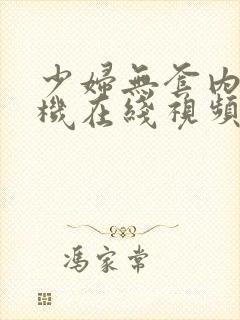 少婦無套内
機在綫視頻
馮家常